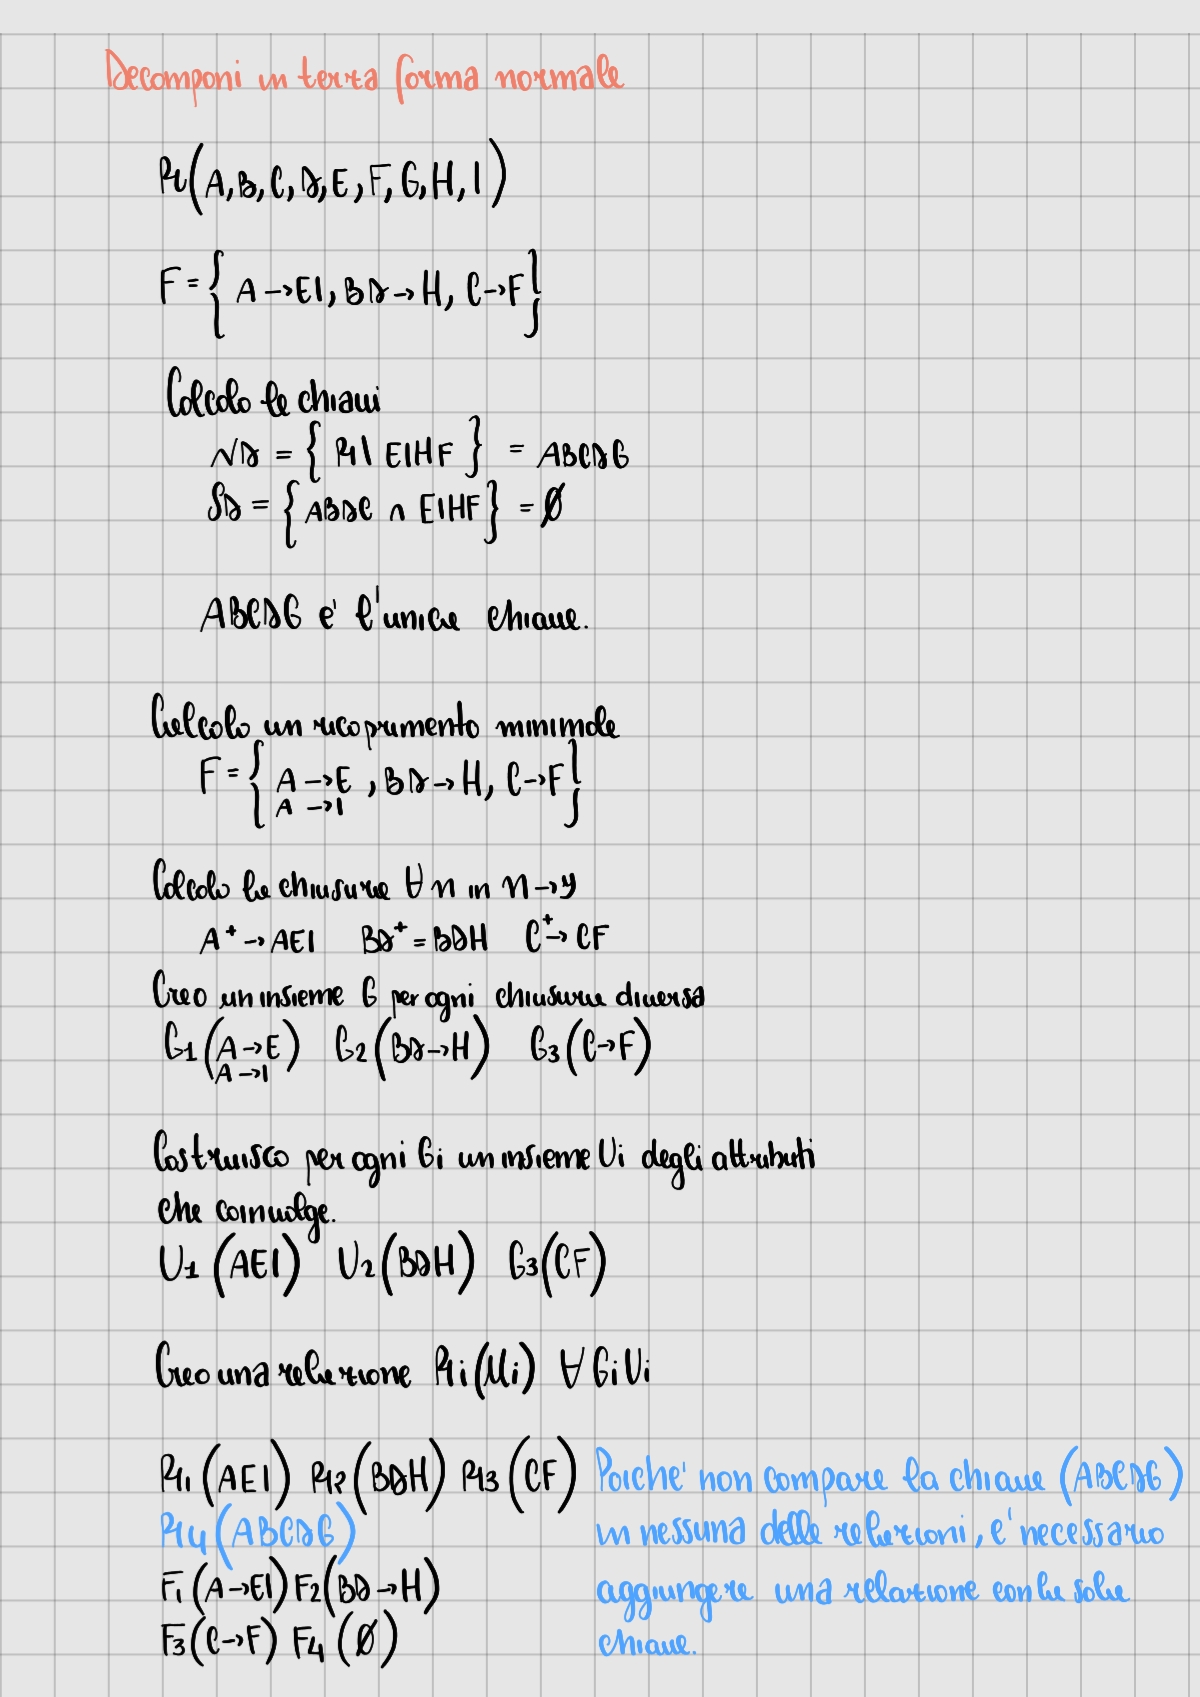 Decomponi in terza forma normale
R(A,B,C,D,E,F,G,H,I)
F={A→EI, BD→H, C→F}
Calcolo le chiavi
ND = {R\EIHF} = ABCDG
SD = {ABDC ∩ EIHF} = Ø
ABCDG e' l'unica chiave.
Calcolo un ricoprimento minimale
F={A→E, BD→H, C→F}
A→I
Calcolo la chiusura ∀ n in n→y
A⁺→AEI BD⁺=BDH C⁺→CF
Creo un insieme G per ogni chiusura diversa
G1(A→E) G2(BD→H) G3(C→F)
A→I
Costruisco per ogni Gi un insieme Ui degli attributi
che coinvolge.
U1(AEI) U2(BDH) G3(CF)
Creo una relazione Ri(Ui) ∀ Gi Ui
R1(AEI) R2(BDH) R3(CF) Poiche' non compare la chiave (ABCDG)
R4(ABCDG) in nessuna delle relazioni, e' necessario
F1(A→EI) F2(BD→H) aggiungere una relazione con la sola
F3(C→F) F4(Ø) chiave.